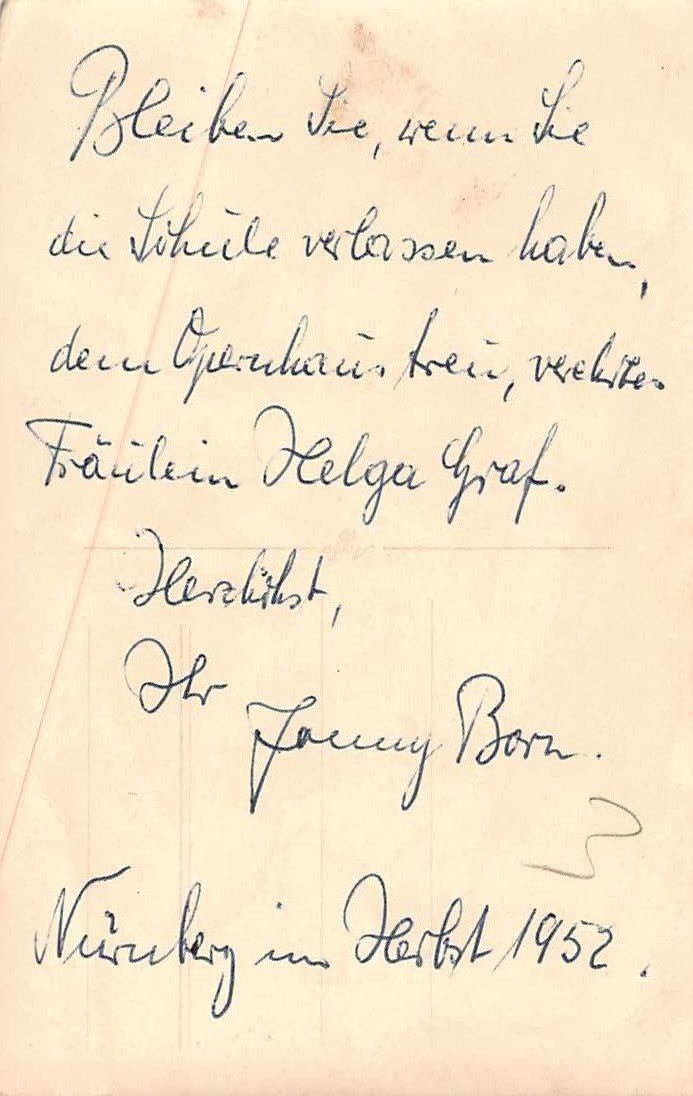 Bleiben Sie, wenn Sie
die Schule verlassen haben,
dem Opernhaus treu, verehrtes
Fräulein Helga Graf.
Herzlichst,
Ihr
Jonny Born.
Nürnberg im Herbst 1952.